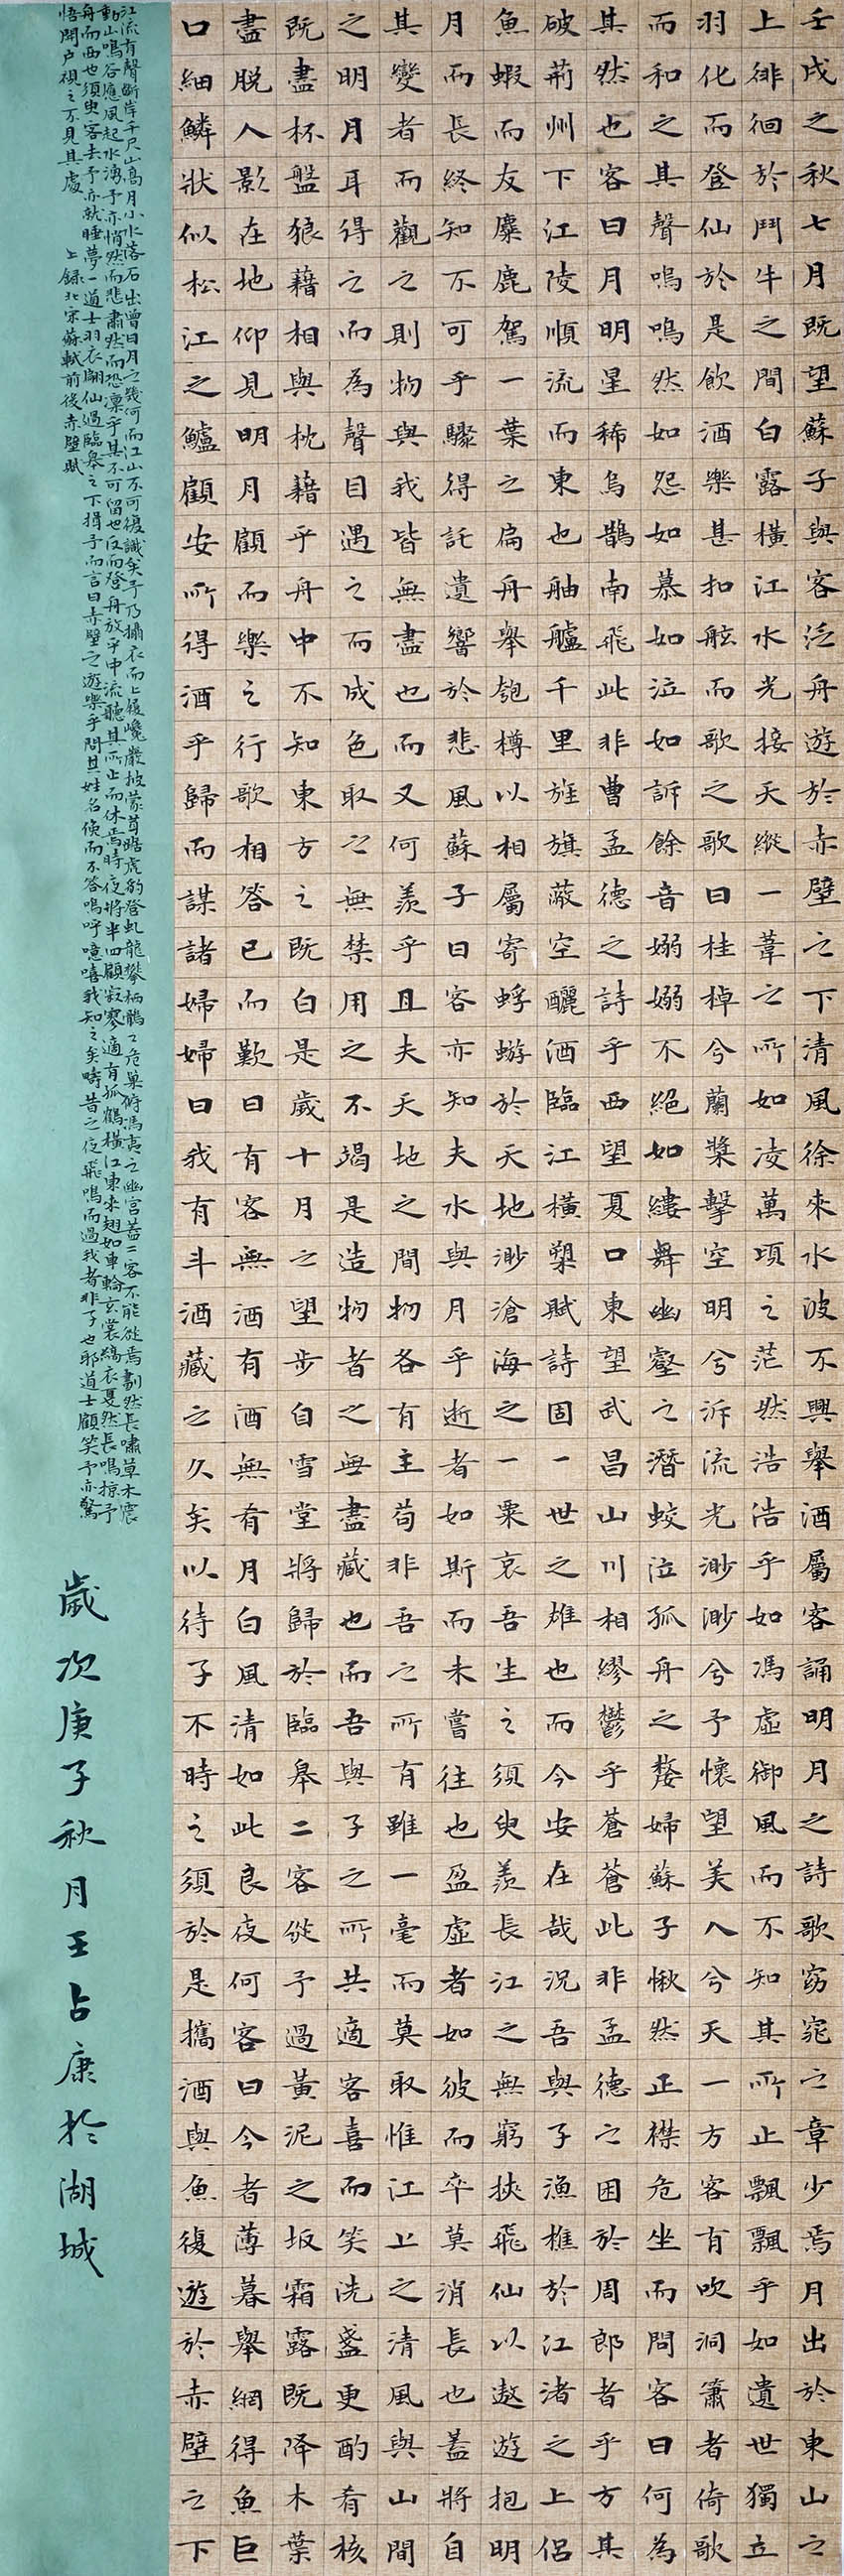 壬戌之秋七月既望蘇子與客泛舟遊於赤壁之下清風徐來水波不興舉酒屬客誦明月之詩歌窈窕之章少焉月出於東山之
上徘徊於鬥牛之間白露橫江水光接天縱一葦之所如凌萬頃之茫然浩浩乎如馮虛御風而不知其所止飄飄乎如遺世獨立
羽化而登仙於是飲酒樂甚扣舷而歌之歌曰桂棹兮蘭槳擊空明兮泝流光渺渺兮予懷望美人兮天一方客有吹洞簫者倚歌
而和之其聲嗚嗚然如怨如慕如泣如訴餘音嫋嫋不絕如縷舞幽壑之潛蛟泣孤舟之嫠婦蘇子愀然正襟危坐而問客曰何為
其然也客曰月明星稀烏鵲南飛此非曹孟德之詩乎西望夏口東望武昌山川相繆鬱乎蒼蒼此非孟德之困於周郎者乎方其
破荊州下江陵順流而東也舳艫千里旌旗蔽空釃酒臨江橫槊賦詩固一世之雄也而今安在哉況吾與子漁樵於江渚之上侶
魚蝦而友麋鹿駕一葉之扁舟舉匏樽以相屬寄蜉蝣於天地渺滄海之一粟哀吾生之須臾羨長江之無窮挾飛仙以遨遊抱明
月而長終知不可乎驟得託遺響於悲風蘇子曰客亦知夫水與月乎逝者如斯而未嘗往也盈虛者如彼而卒莫消長也蓋將自
其變者而觀之則物與我皆無盡也而又何羨乎且夫天地之間物各有主苟非吾之所有雖一毫而莫取惟江上之清風與山間
之明月耳得之而為聲目遇之而成色取之無禁用之不竭是造物者之無盡藏也而吾與子之所共適客喜而笑洗盞更酌肴核
既盡杯盤狼藉相與枕藉乎舟中不知東方之既白是歲十月之望步自雪堂將歸於臨皋二客從予過黃泥之坂霜露既降木葉
盡脫人影在地仰見明月顧而樂之行歌相答已而歎曰有客無酒有酒無肴月白風清如此良夜何客曰今者薄暮舉網得魚巨
口細鱗狀似松江之鱸顧安所得酒乎歸而謀諸婦婦曰我有斗酒藏之久矣以待子不時之須於是攜酒與魚復遊於赤壁之下
江流有聲斷岸千尺山高月小水落石出曾日月之幾何而江山不可復識矣予乃攝衣而上履巉巖披蒙茸踞虎豹登虬龍攀栖鶻之危巢俯馮夷之幽宮蓋二客不能從焉劃然長嘯草木震
動山鳴谷應風起水湧予亦悄然而悲肅然而恐凜乎其不可留也反而登舟放乎中流聽其所止而休焉時夜將半四顧寂寥適有孤鶴橫江東來翅如車輪玄裳縞衣戛然長鳴掠予
舟而西也須臾客去予亦就睡夢一道士羽衣翩仙過臨皋之下揖予而言曰赤壁之遊樂乎問其姓名俛而不答嗚呼噫嘻我知之矣疇昔之夜飛鳴而過我者非子也耶道士顧笑予亦驚
悟開户視之不見其處 上錄北宋蘇軾前後赤壁賦
歲次庚子秋月王占康於湖城